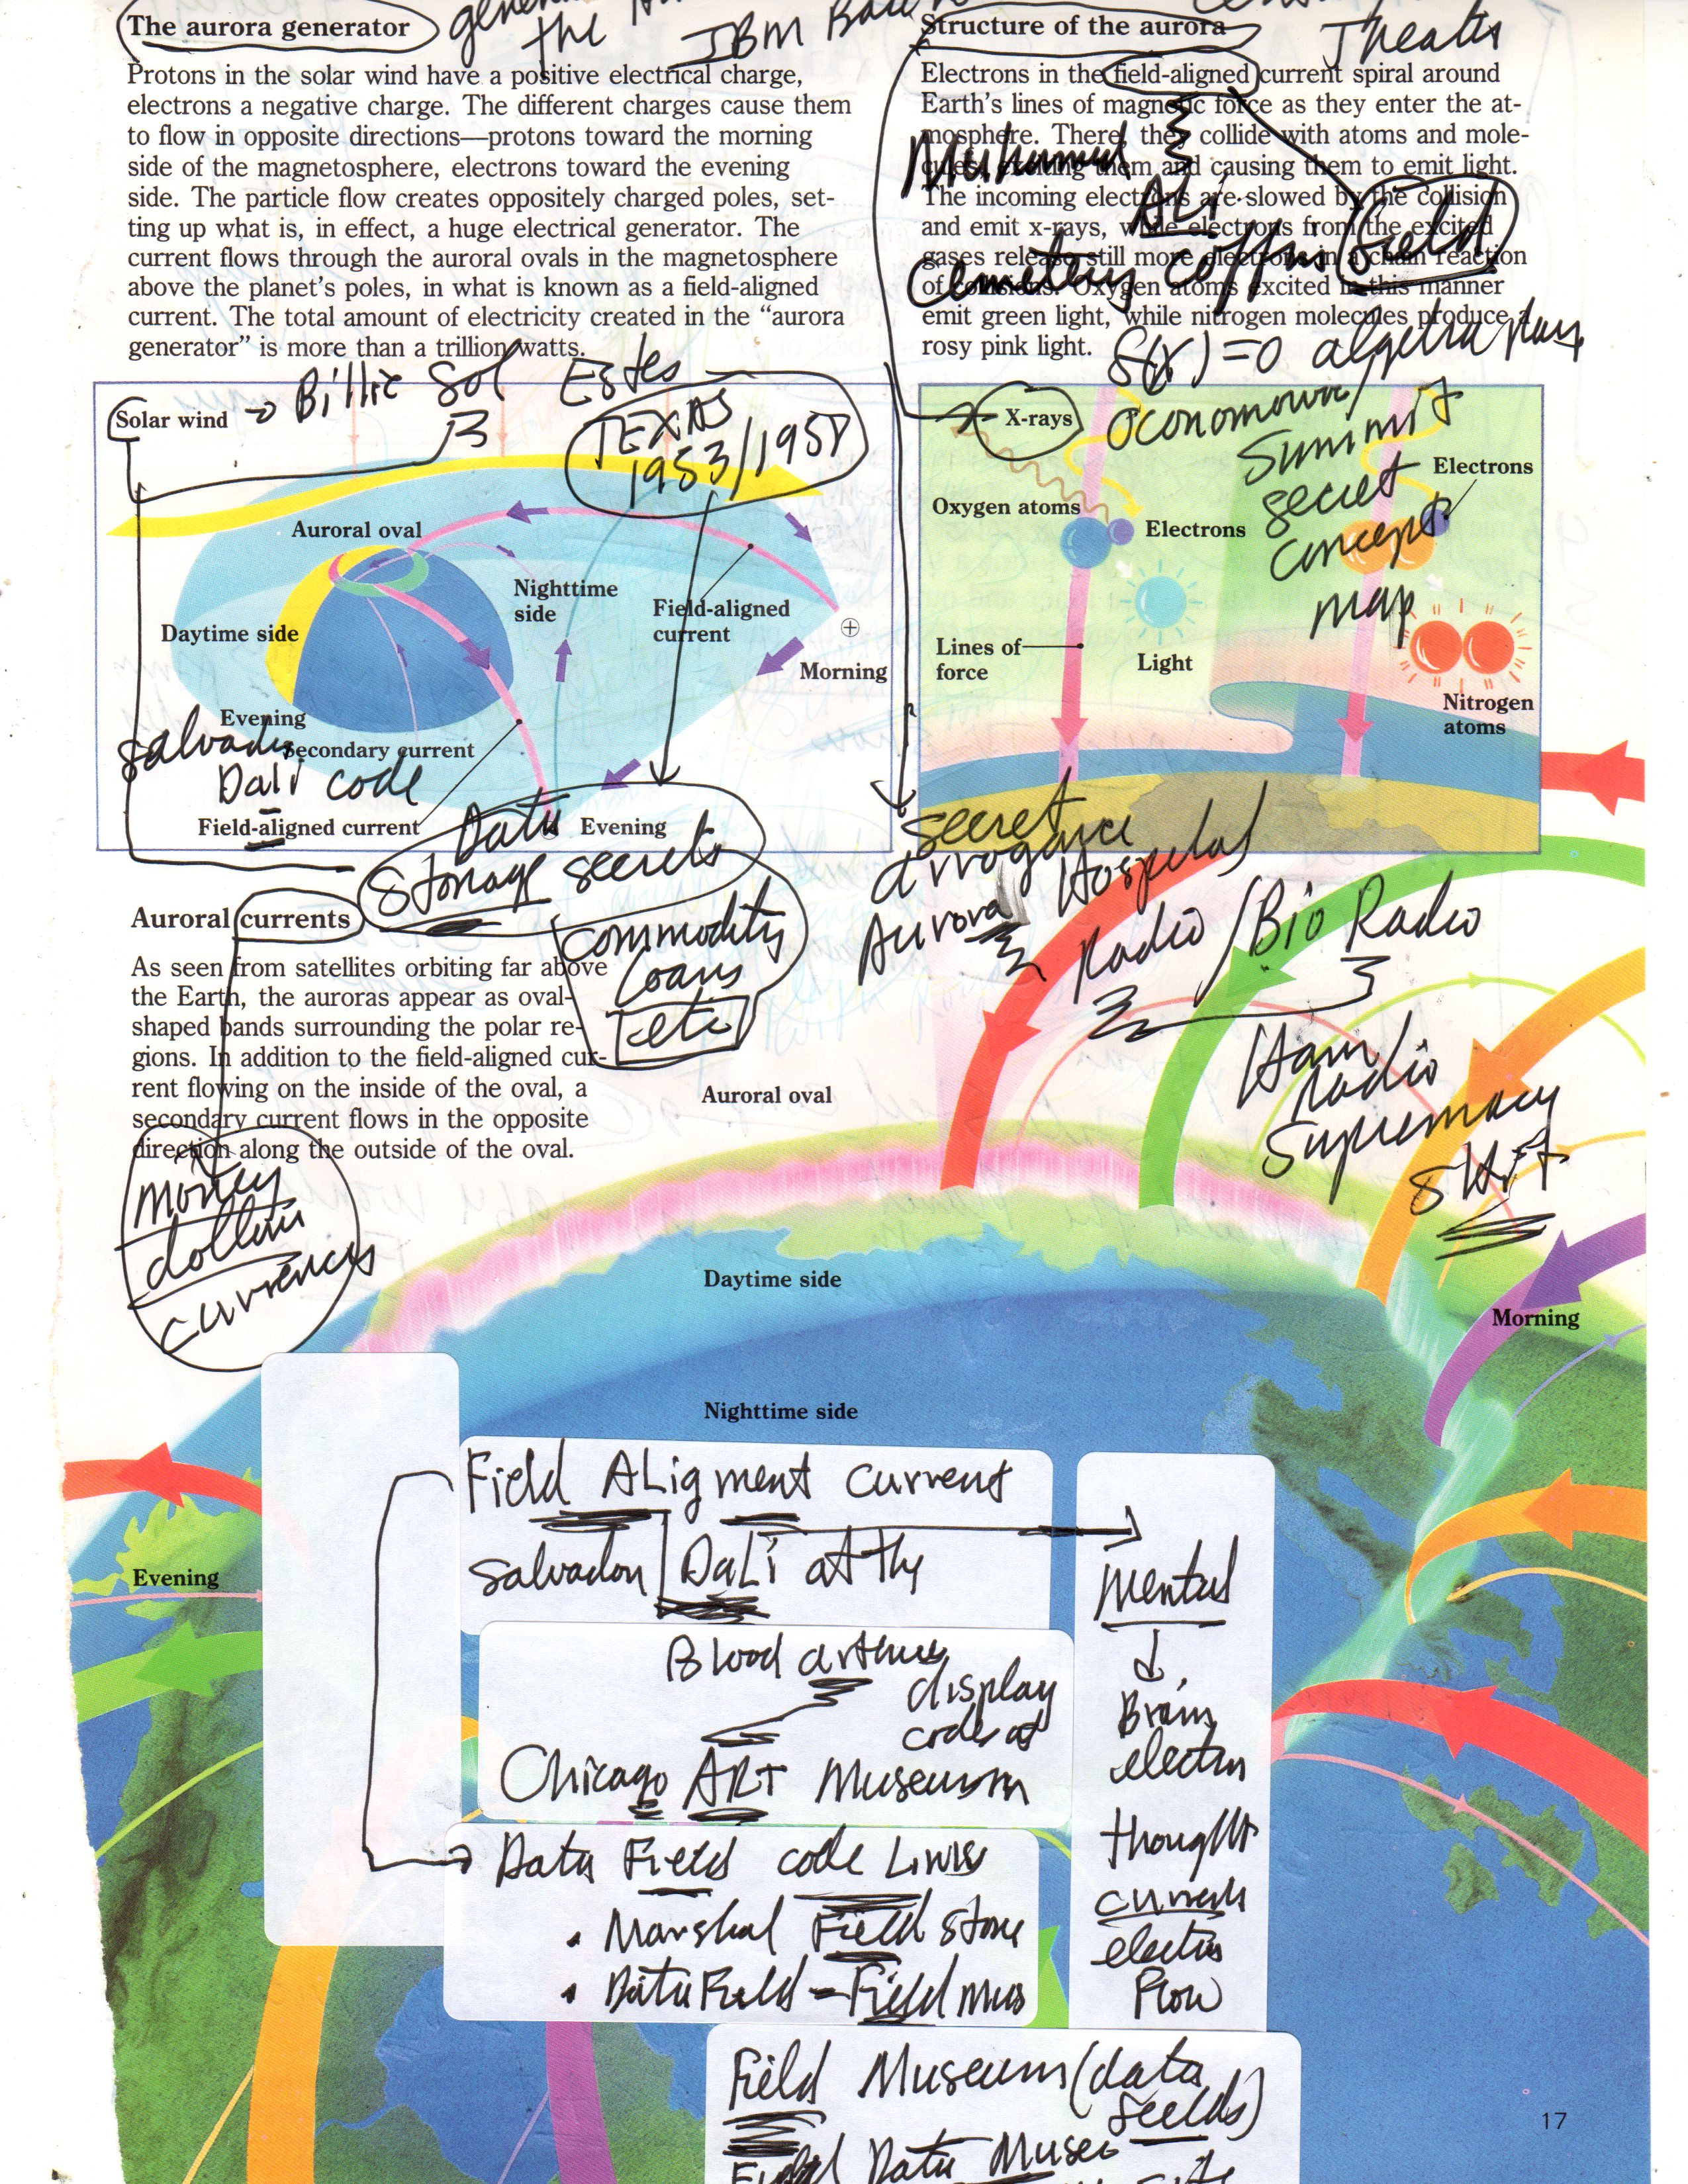 The aurora generator
the
IBM
Protons in the solar wind have a positive electrical charge,
electrons a negative charge. The different charges cause them
to flow in opposite directions—protons toward the morning
side of the magnetosphere, electrons toward the evening
side. The particle flow creates oppositely charged poles, set-
ting up what is, in effect, a huge electrical generator. The
current flows through the auroral ovals in the magnetosphere
above the planet's poles, in what is known as a field-aligned
current. The total amount of electricity created in the “aurora
generator” is more than a trillion watts.
Structure of the aurora
Theater
Electrons in the field-aligned current spiral around
Earth's lines of magnetic force as they enter the at-
mosphere. There, they collide with atoms and mole-
cules, exciting them and causing them to emit light.
The incoming electrons are slowed by the collision
and emit x-rays, while electrons from the excited
gases release still more electrons in a chain reaction
of collisions. Oxygen atoms excited in this manner
emit green light, while nitrogen molecules produce a
rosy pink light.
ALi
Cemetery Coffins Field
f(x)=0 algebra
Solar wind
Billie Sol Estes
TEXAS
1953/1958
Auroral oval
Nighttime
side
Field-aligned
current
Daytime side
Morning
Evening
Secondary current
Salvador
Dali code
Field-aligned current
Evening
Data
Storage secrets
commodity
Loans
etc
X-rays
Oconomowoc/
Summit
secret
concept
map
Electrons
Oxygen atoms
Electrons
Lines of
force
Light
Nitrogen
atoms
secret
arrogance
Aurora
Hospital
Radio/Bio Radio
Ham
Radio
Supremacy
shift
Auroral currents
As seen from satellites orbiting far above
the Earth, the auroras appear as oval-
shaped bands surrounding the polar re-
gions. In addition to the field-aligned cur-
rent flowing on the inside of the oval, a
secondary current flows in the opposite
direction along the outside of the oval.
money
dollars
currences
Auroral oval
Daytime side
Morning
Nighttime side
Evening
Field ALigment current
Salvador DaLi at the
Blood
display
code at
Chicago ART Museusm
Data Field code Links
• Marshal Field store
• Data Field - Field mus
Mental
Brain
electric
thought
currents
electric
Flow
Field Museum (data
feelds)
Field Data Museo
17